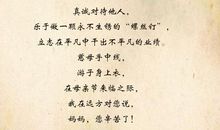 真诚对待他人，
乐于做一颗永不生锈的“螺丝钉”，
立志在平凡中干出不平凡的业绩。
慈母手中线，
游子身上衣，
在母亲节来临之际，
我在远方对您说，
妈妈，您辛苦了！